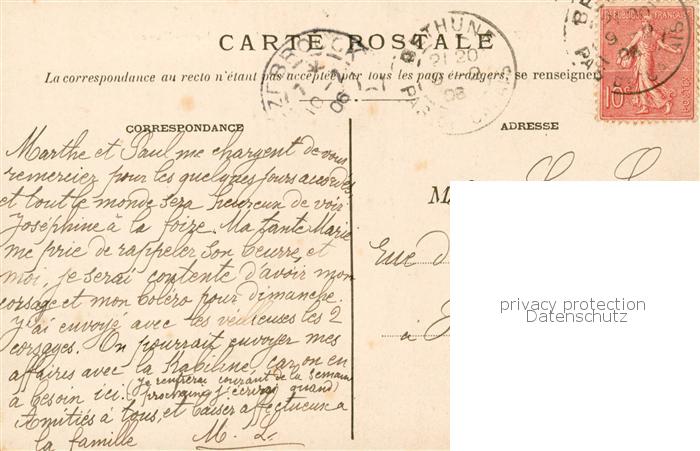 CARTE POSTALE
La correspondance au recto n'étant pas acceptée par tous les pays étrangers, se renseigner
CORRESPONDANCE
Marthe et Paul me chargent de vous
remercier pour les quelques jours accordés
et tout le monde sera heureux de voir
Joséphine à la foire. Ma tante Marie
me prie de rappeler son beurre, et
moi, je serai contente d'avoir mon
corsage et mon boléro pour dimanche.
J'ai envoyé avec les les 2
corsages. On pourrait envoyer mes
affaires avec la car on en
a besoin ici. Je rentrerai courant de la semaine
prochaine j'écrirai quand
Amitiés à tous, et baiser affectueux à
la famille M. L.
ADRESSE
M
Rue d
à
BÉTHUNE
21 20
08
PAS CALAIS
08
10
privacy protection
Datenschutz